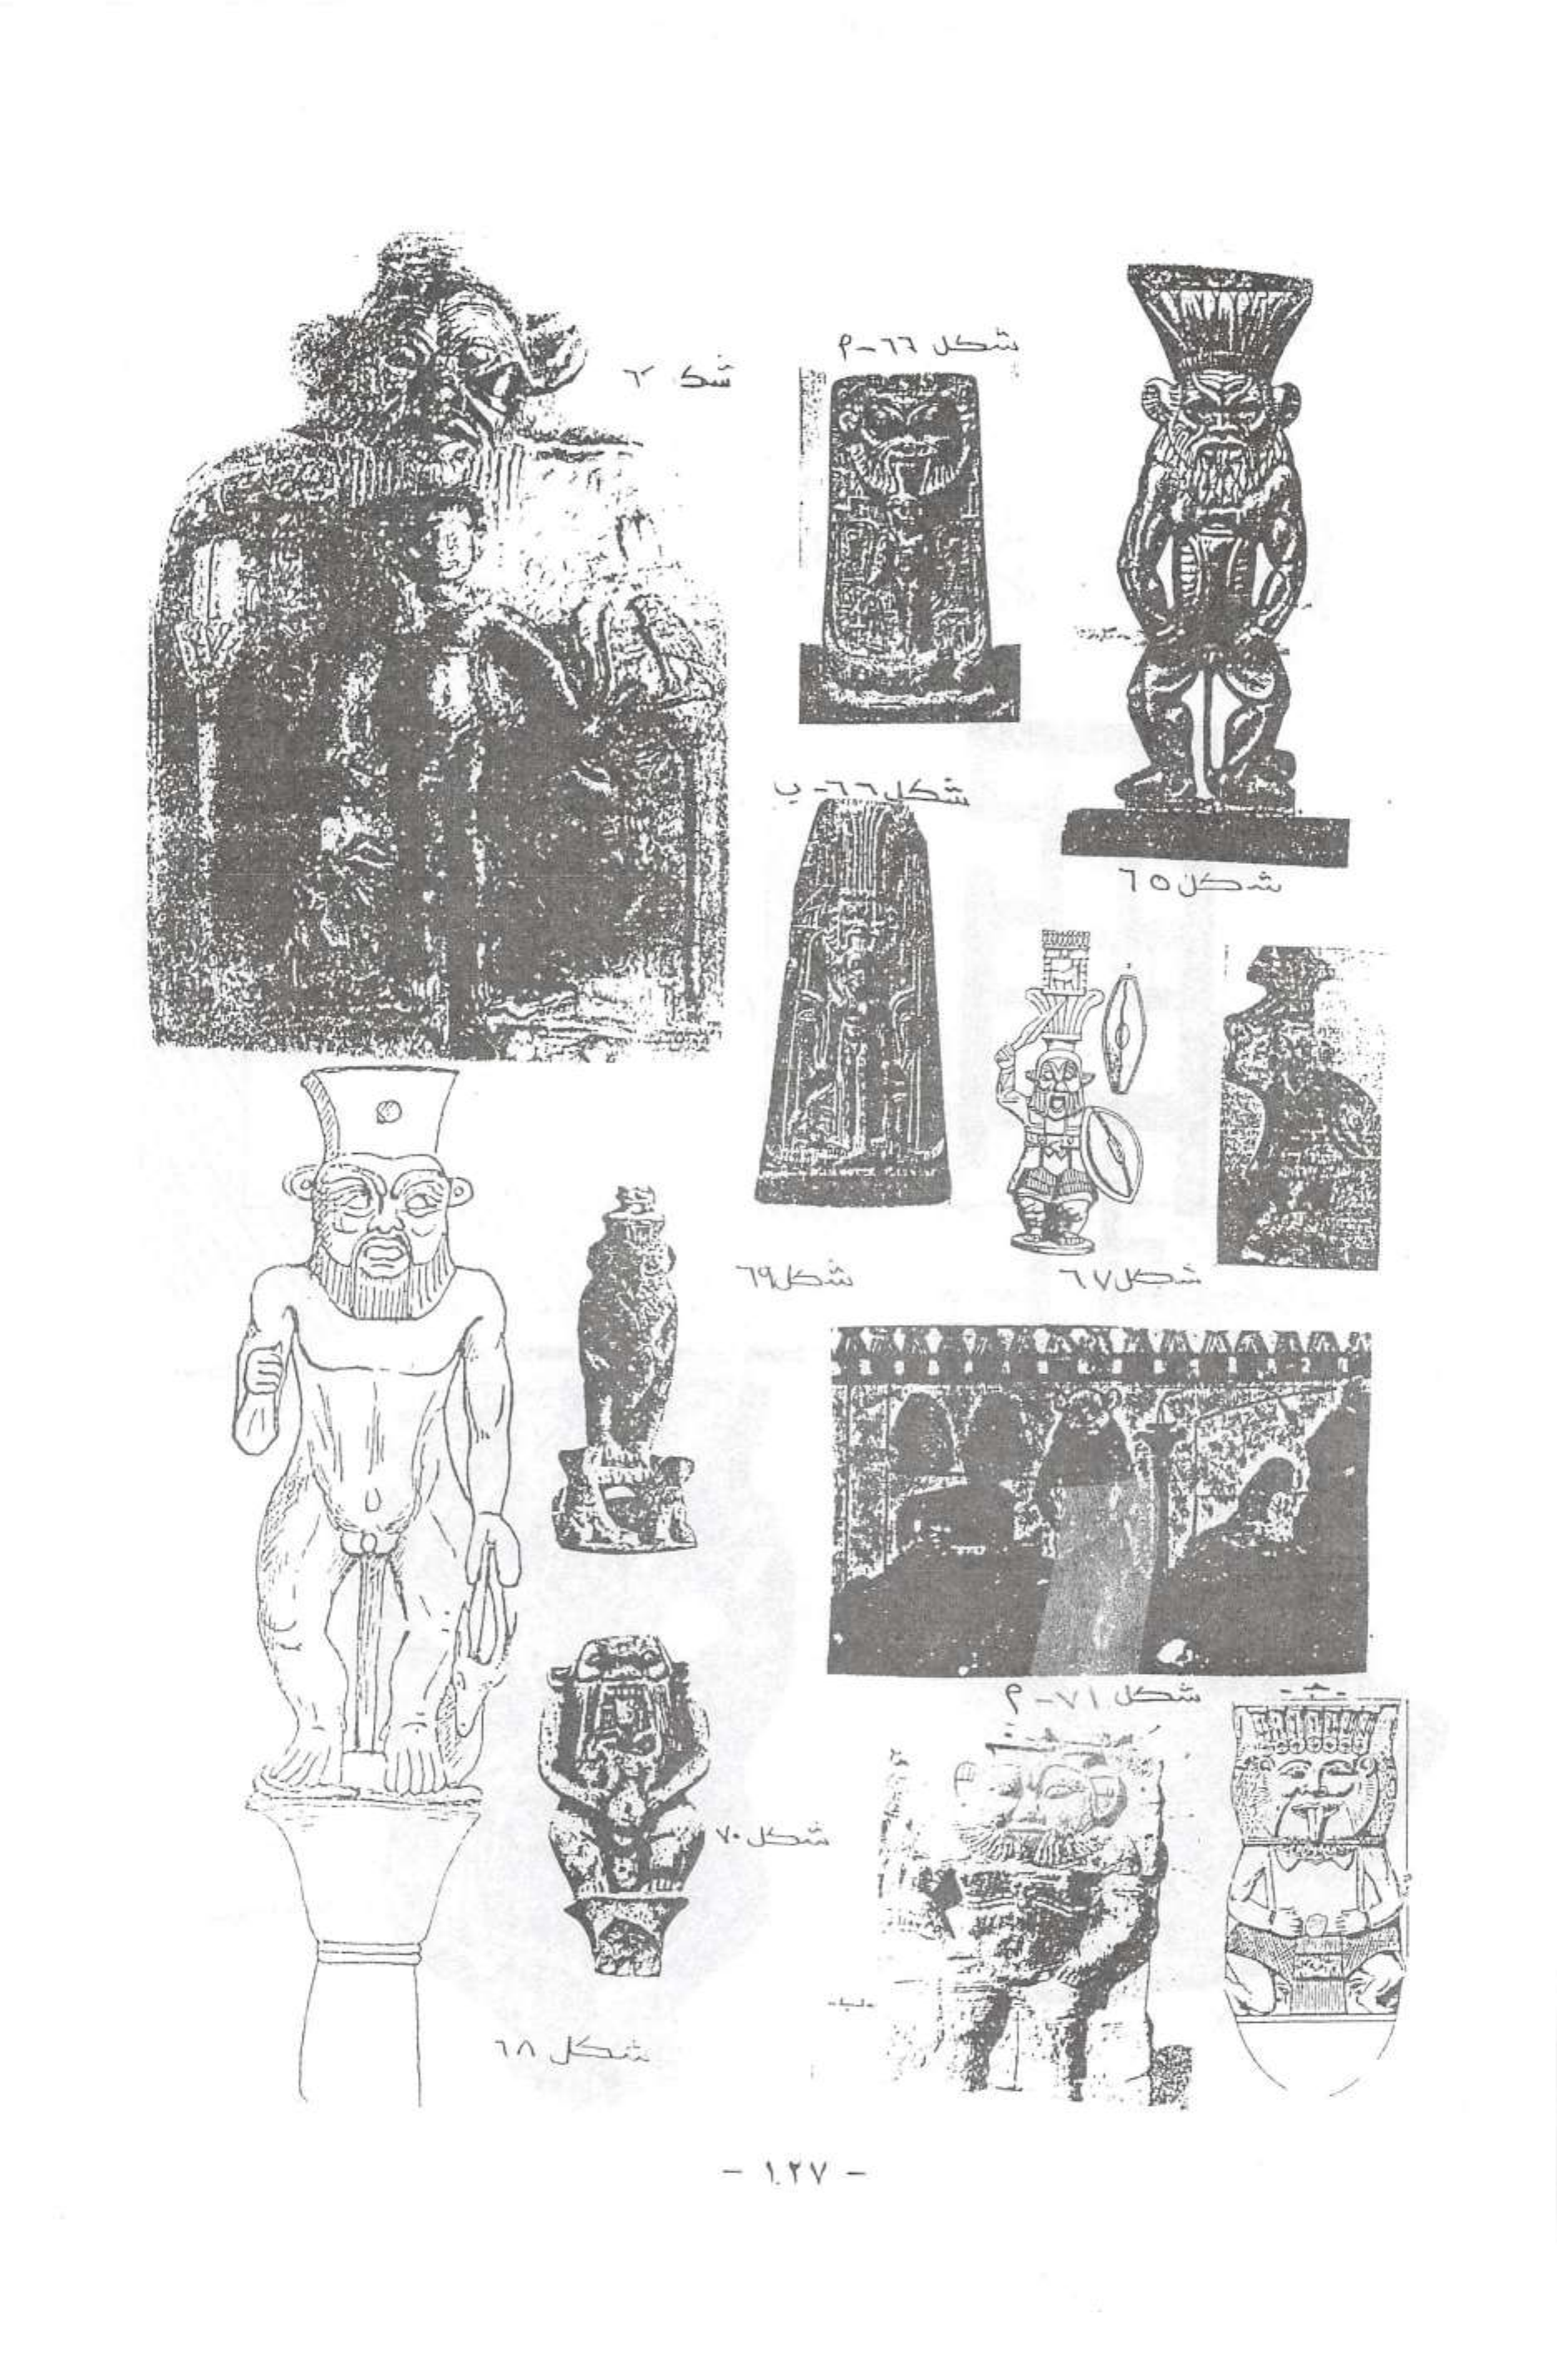 شكل ٦٦-م
شكل ٦٦-ب
شكل ٦٥
شكل ٦٩
شكل ٦٧
شكل ٧١-م
شكل ٧٠
شكل ٦٨
- ١٢٧ -